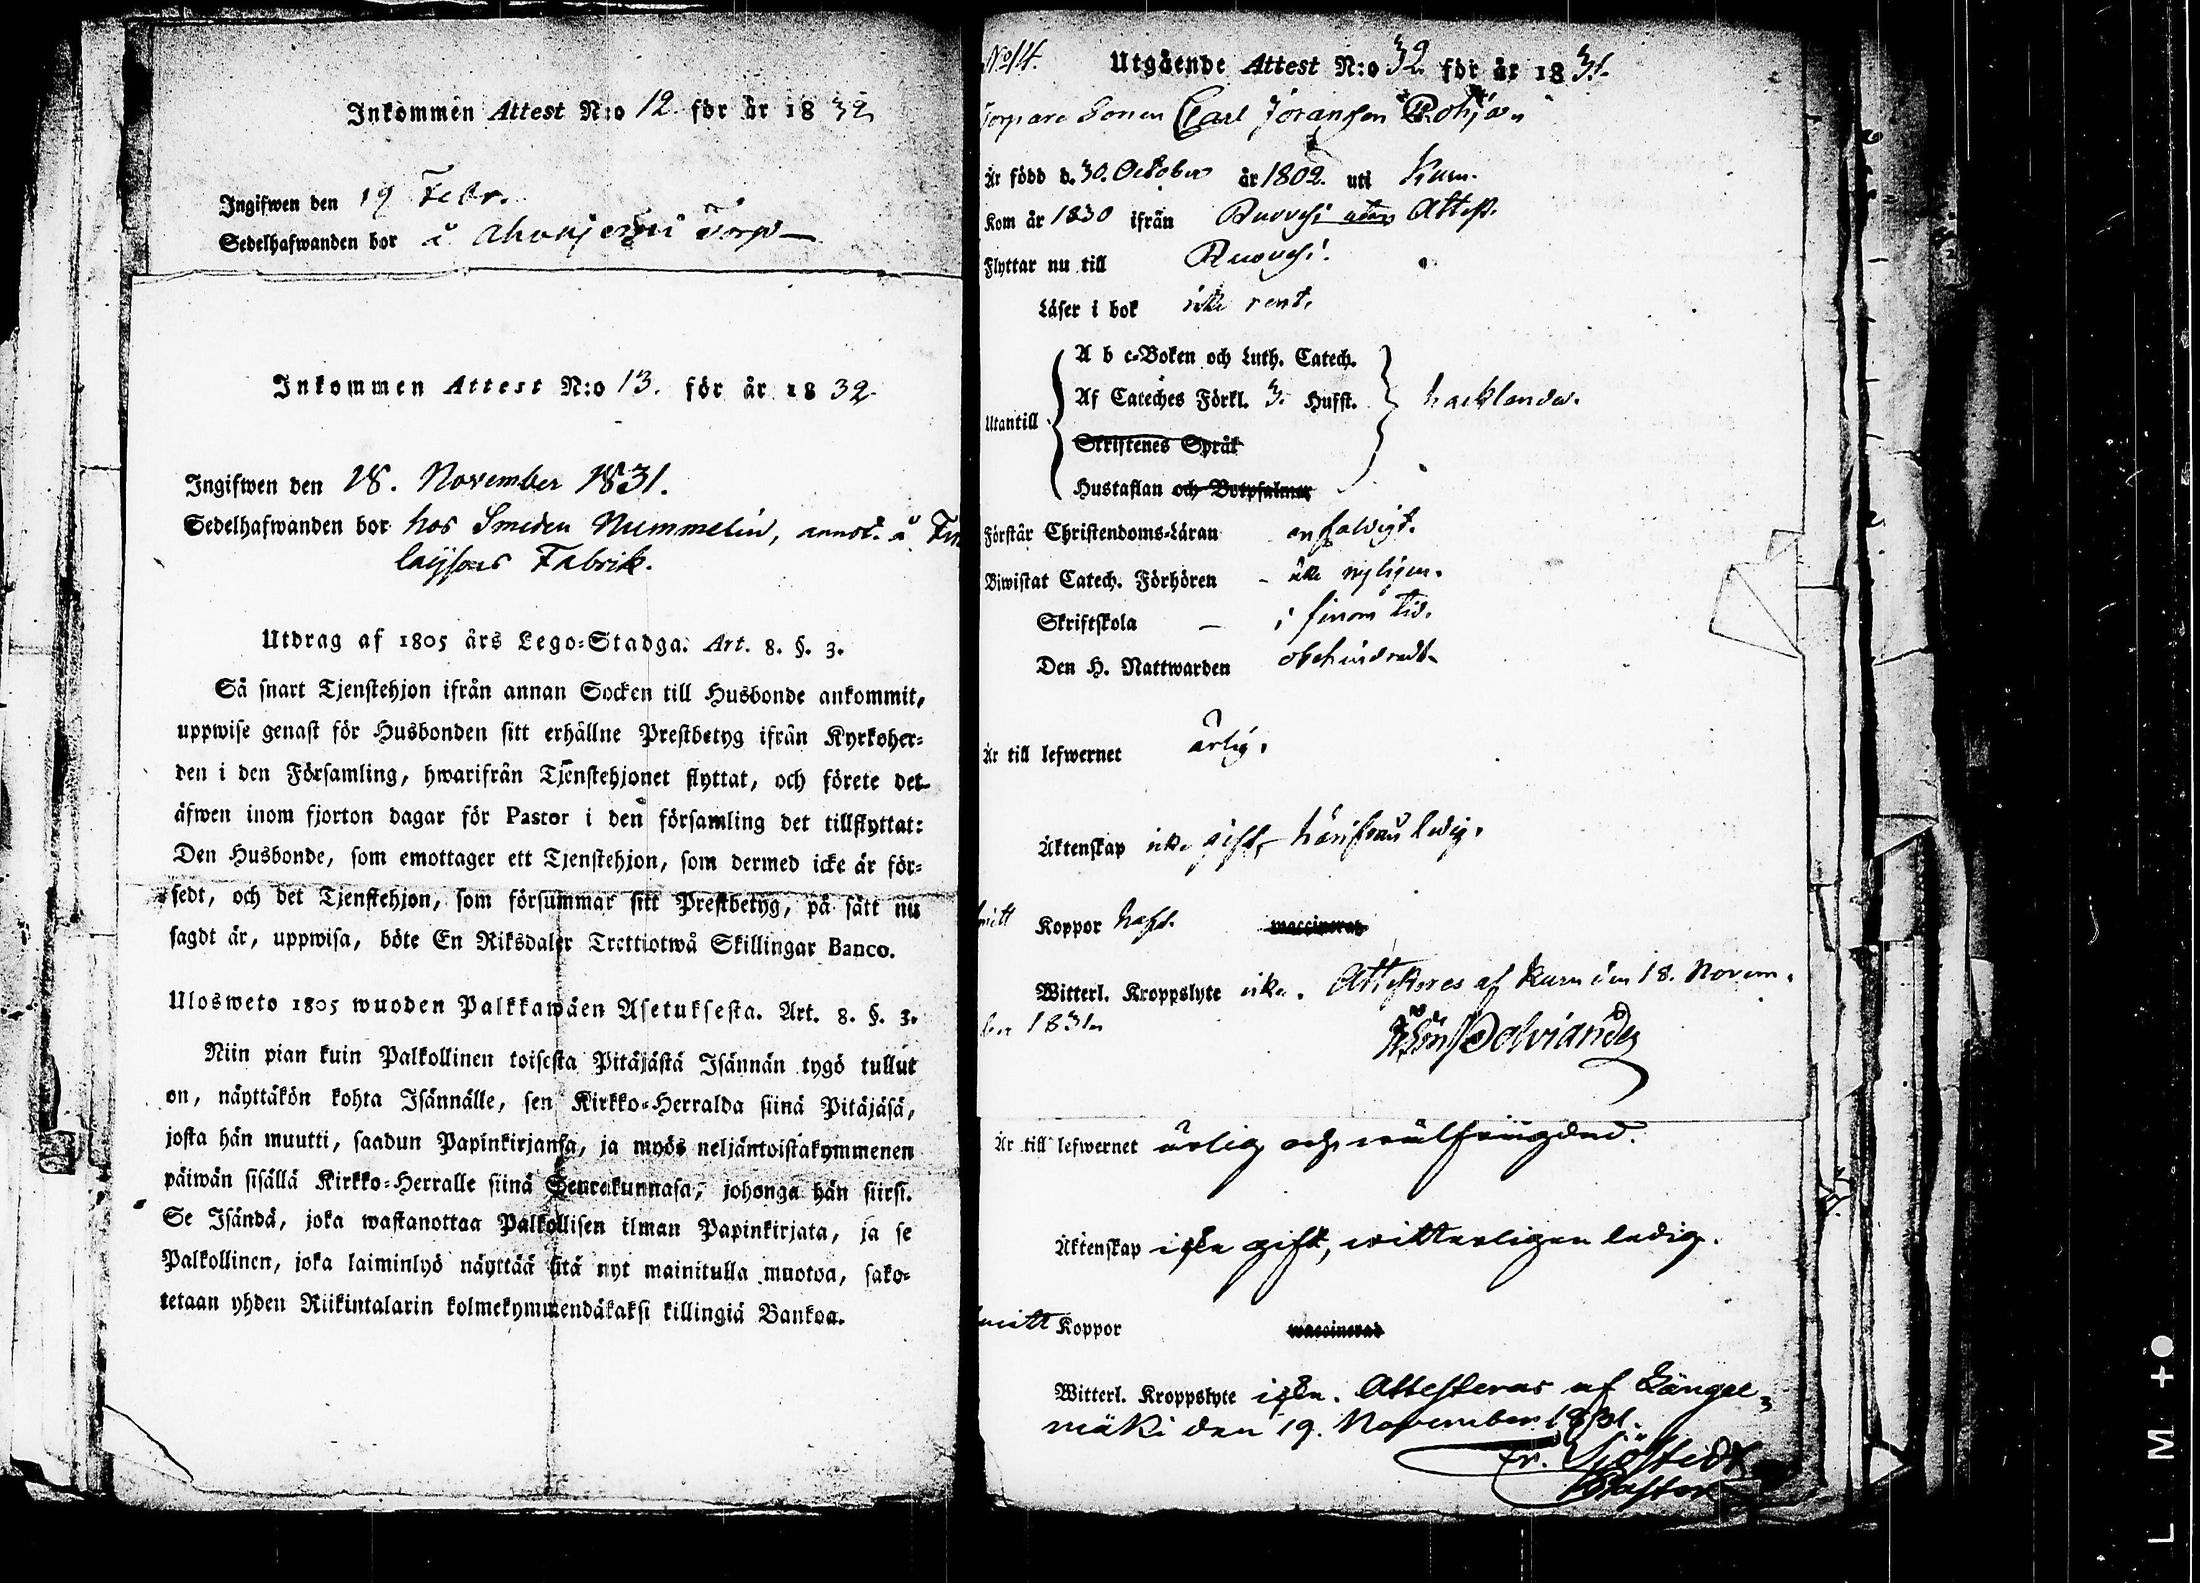 Inkommen Attest N:o 12. för år 1832
Ingifwen den 19 Febr.
Sedelhafwanden bor å Torp
Inkommen Attest N:o 13. för år 1832
Ingifwen den 18. November 1831.
Sedelhafwanden bor hos Smeden Nummelin, annot. å Fin
laysons Fabrik.
Utdrag af 1805 års Lego-Stadga. Art. 8. §. 3.
Så snart Tjenstehjon ifrån annan Socken till Husbonde ankommit,
uppwise genast för Husbonden sitt erhållne Prestbetyg ifrån Kyrkoher-
den i den Församling, hwarifrån Tjenstehjonet flyttat, och förete det
äfwen inom fjorton dagar för Pastor i den församling det tillflyttat:
Den Husbonde, som emottager ett Tjenstehjon, som dermed icke är för-
sedt, och det Tjenstehjon, som försummar sitt Prestbetyg, på sätt nu
sagdt är, uppwisa, böte En Riksdaler Trettiotwå Skillingar Banco.
Ulosweto 1805 wuoden Palkkawäen Asetuksesta. Art. 8. §. 3.
Niin pian kuin Palkollinen toisesta Pitäjästä Isännän tygö tullut
on, näyttäkön kohta Isännälle, sen Kirkko-Herralda siinä Pitäjäsä,
josta hän muutti, saadun Papinkirjansa, ja myös neljäntoistakymmenen
päiwän sisällä Kirkko-Herralle siinä Seurakunnasa, johonga hän siirsi.
Se Isändä, joka wastanottaa Palkollisen ilman Papinkirjata, ja se
Palkollinen, joka laiminlyö näyttää sitä nyt mainitulla muotoa, sako-
tetaan yhden Riikintalarin kolmekymmendäkaksi killingiä Bankoa.
No 14. Utgående Attest N:o 32 för år 1831.
Torpare Sonen Carl Jöransson
Är född d. 30. October år 1802. uti Kum.
Kom år 1830 ifrån Ruovesi utan Attest.
Flyttar nu till Ruovesi.
Läser i bok icke rent.
Utantill
A b c-Boken och Luth. Catech.
Af Cateches Förkl. 3. Hufst. hacklande.
Skriftenes Språk
Hustaflan och Botpsalmer
Förstår Christendoms-Läran enfaldigt.
Biwistat Catech. Förhören - icke nyligen.
Skriftskola - i sinom tid.
Den H. Nattwarden obehindradt
Är till lefwernet ärlig.
Äktenskap icke gift, härifrån ledig.
Koppor haft. waccinerad
Witterl. Kroppslyte icke. Attesteres af Kum den 18. Novem-
ber 1831.
Är till lefwernet ärlig och wälfrägdad.
Äktenskap icke gift, witterligen ledig.
Koppor waccinerad
Witterl. Kroppslyte icke. Attesteras af Längel-
mäki den 19. November 1831.
Fr. Sjöstedt
Pastor
L M